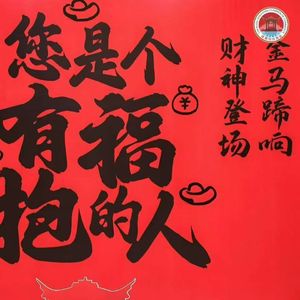 您是个
有福
抱的人
金马蹄响
财神登场